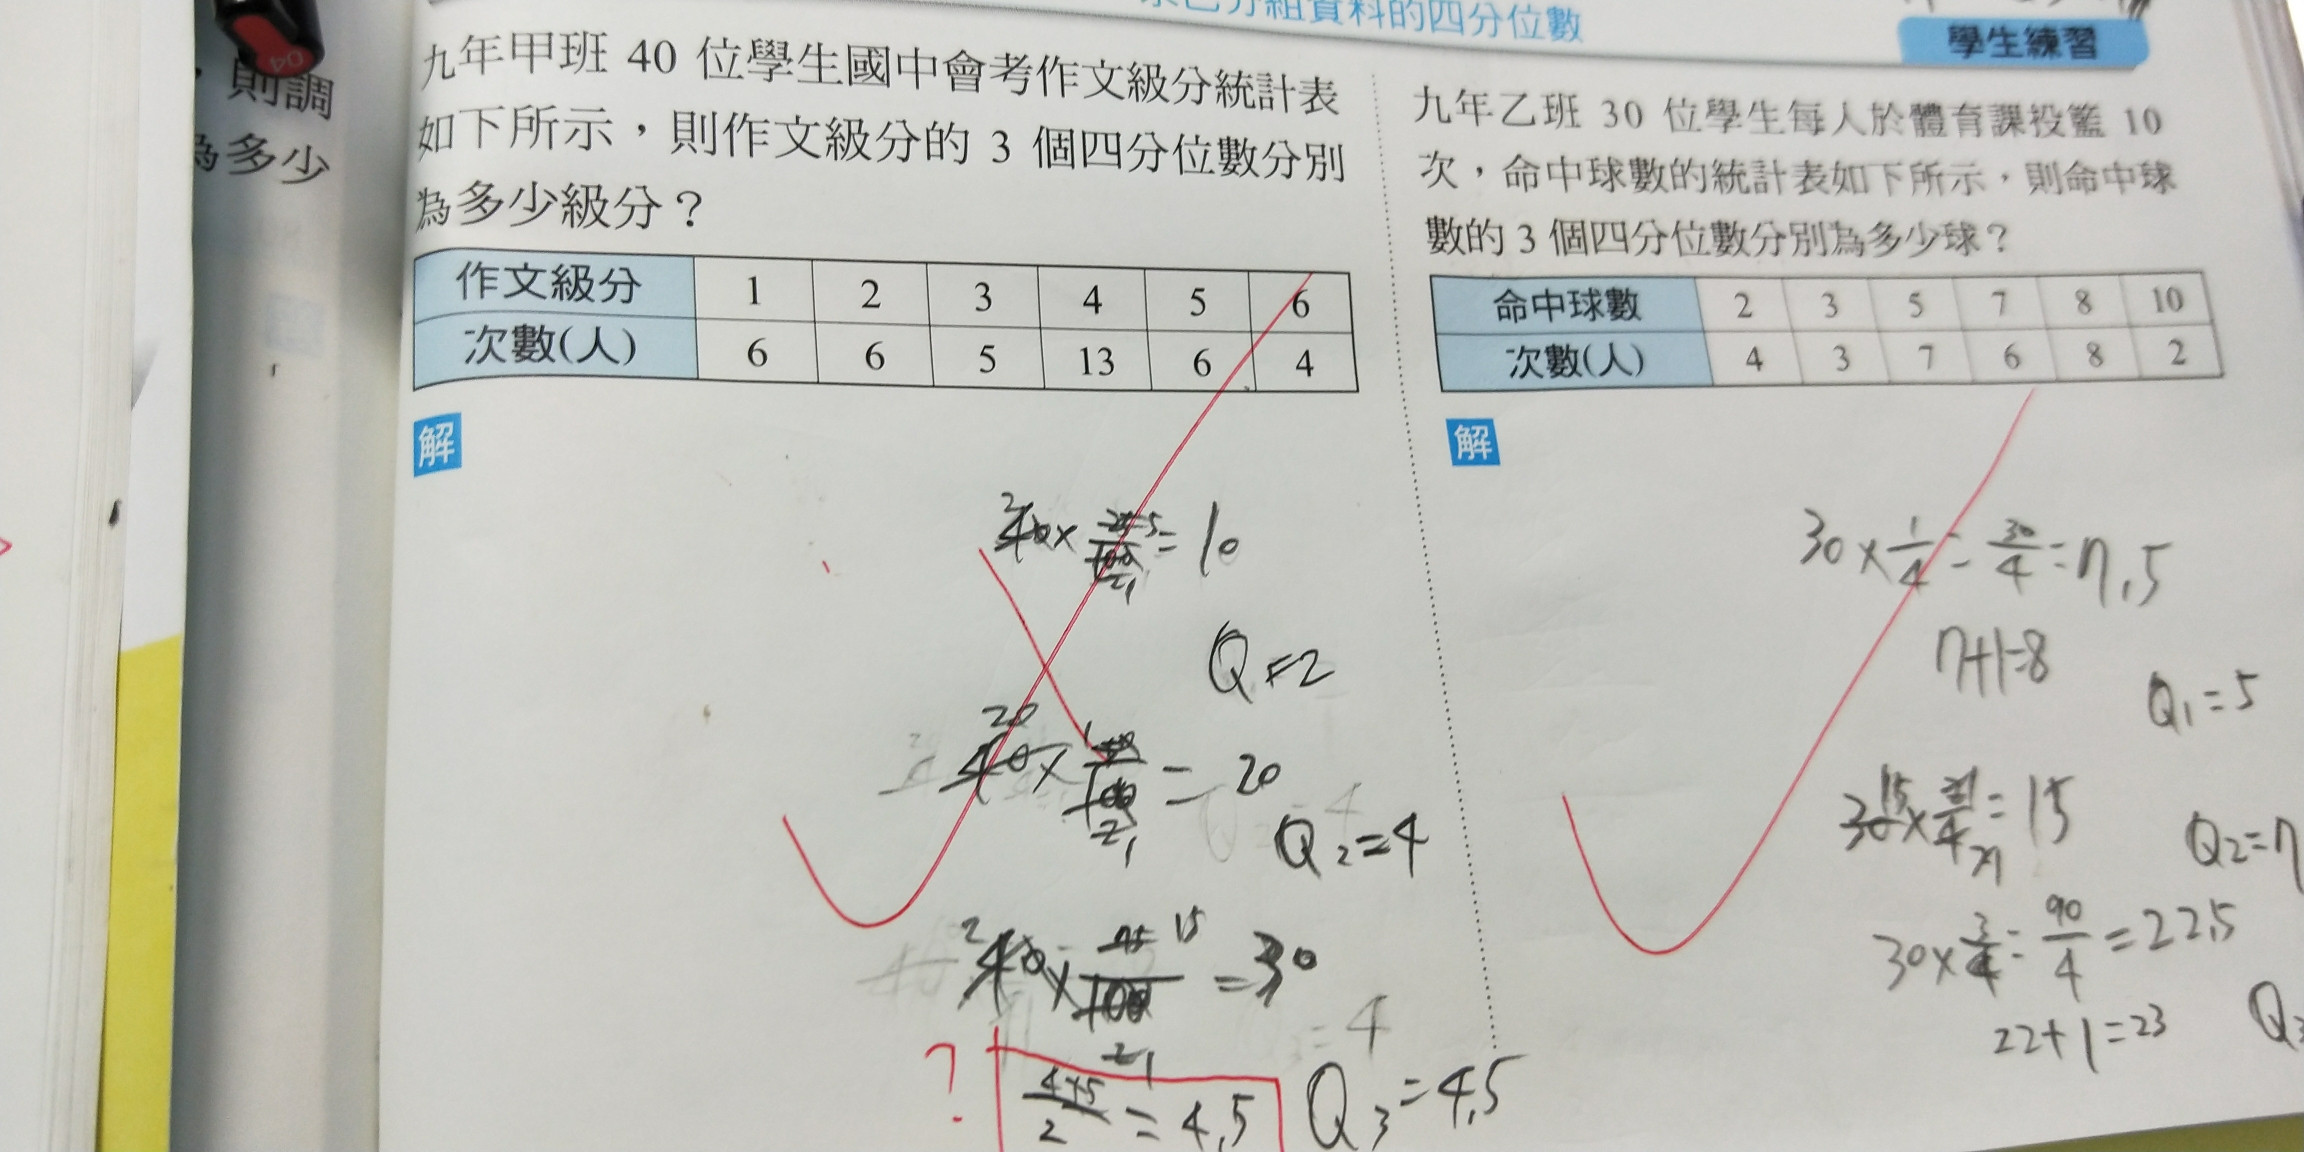 分組資料的四分位數
學生練習
，則調
為多少
九年甲班 40 位學生國中會考作文級分統計表
如下所示，則作文級分的 3 個四分位數分別
為多少級分？
作文級分 1 2 3 4 5 6
次數(人) 6 6 5 13 6 4
解
40×25/100=10
Q1=2
40×50/100=20
Q2=4
40×75/100=30
?
4+5/2=4.5
Q3=4.5
九年乙班 30 位學生每人於體育課投籃 10
次，命中球數的統計表如下所示，則命中球
數的 3 個四分位數分別為多少球？
命中球數 2 3 5 7 8 10
次數(人) 4 3 7 6 8 2
解
30×1/4=30/4=7.5
7+1=8
Q1=5
30×2/4=15
Q2=7
30×3/4=90/4=22.5
22+1=23
Q3